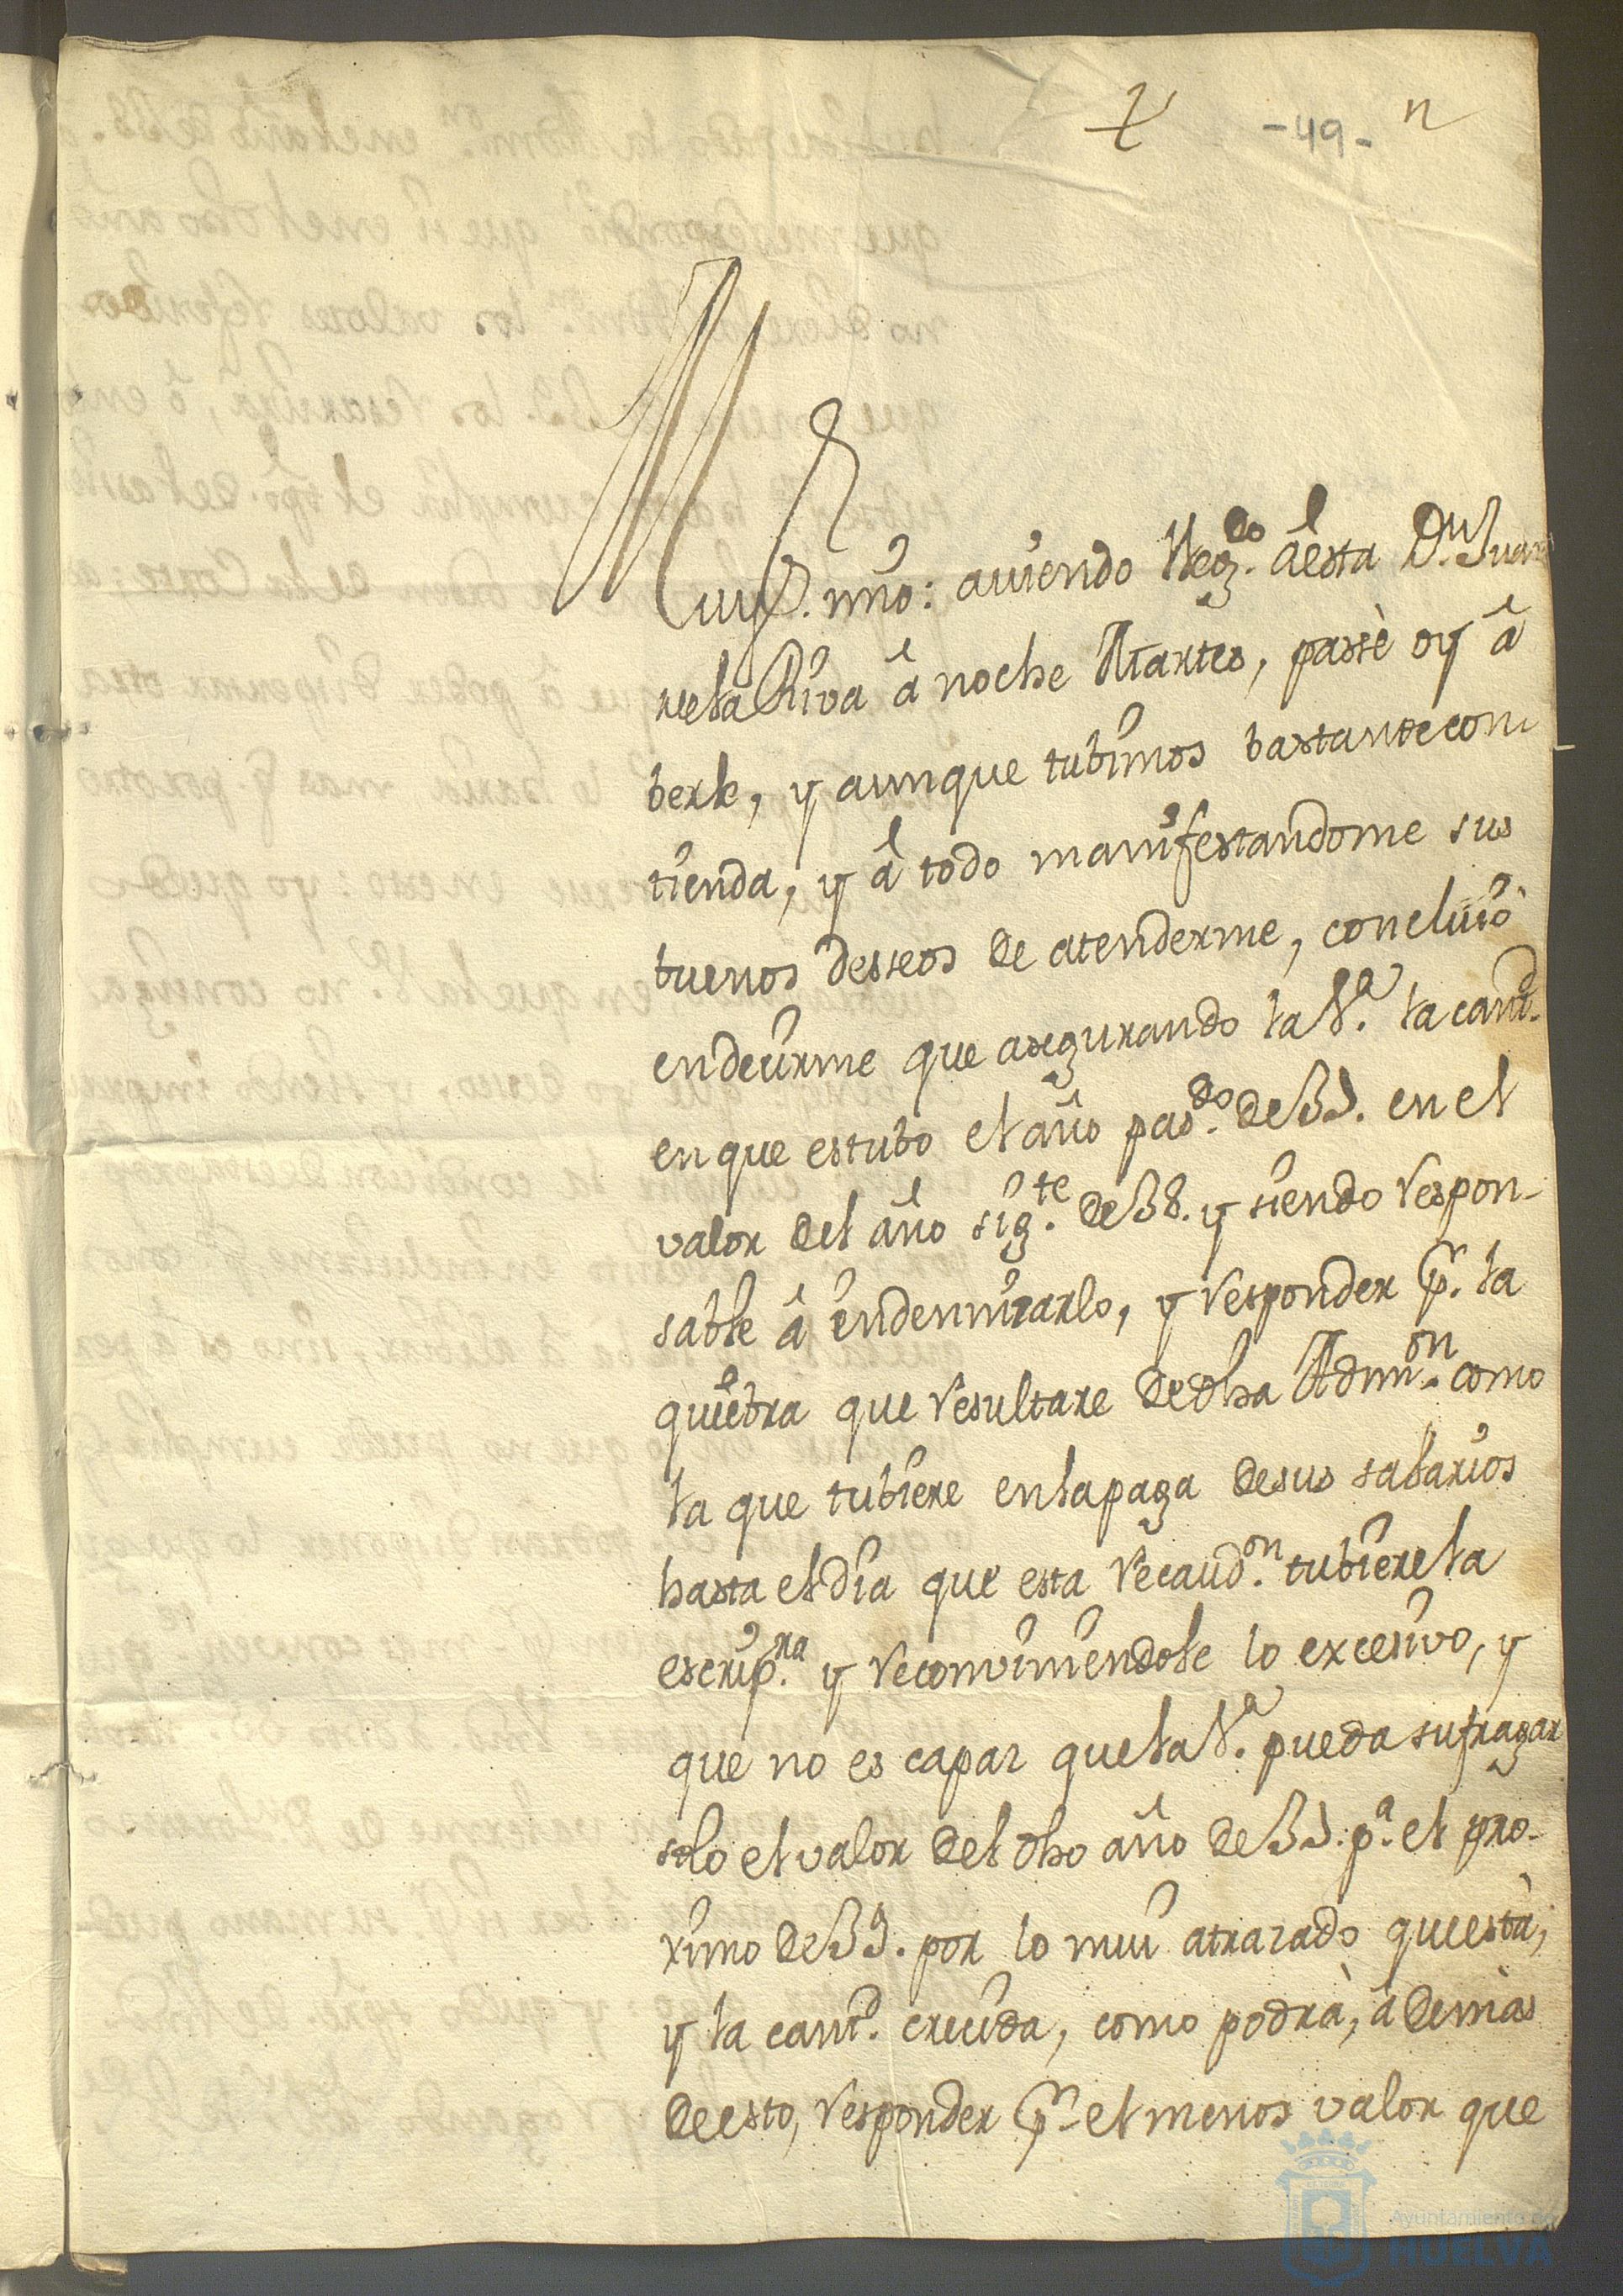 -49- n
Muy S. mio: aviendo lleg.do â esta D.n Juan
de la Riva â noche Martes, passè oy â
berle, y aunque tubimos bastande con
tienda, y â todo manifestandome sus
buenos desseos de atenderme, concluiò
en decirme que asegurando la V.a la cant.d
en que estubo el año pas.do de 37. en el
valor del año sig.te de 38. y siendo respon-
sable â endemnizarlo, y responder p.r la
quiebra que resultare de dha Admi.on como
la que tubiere en la paga de sus salarios
hasta el dia que esta recaud.on tubiere la
escrip.ra y reconviniendole lo excesivo, y
que no es capaz que la V.a pueda sufragar
solo el valor del dho año de 37. p.a el pro-
ximo de 39. por lo mui atrazado que està,
y la cant.d crecida, como podrà, â demàs
de esto, responder p.r el menos valor que
Ayuntamiento de
HUELVA